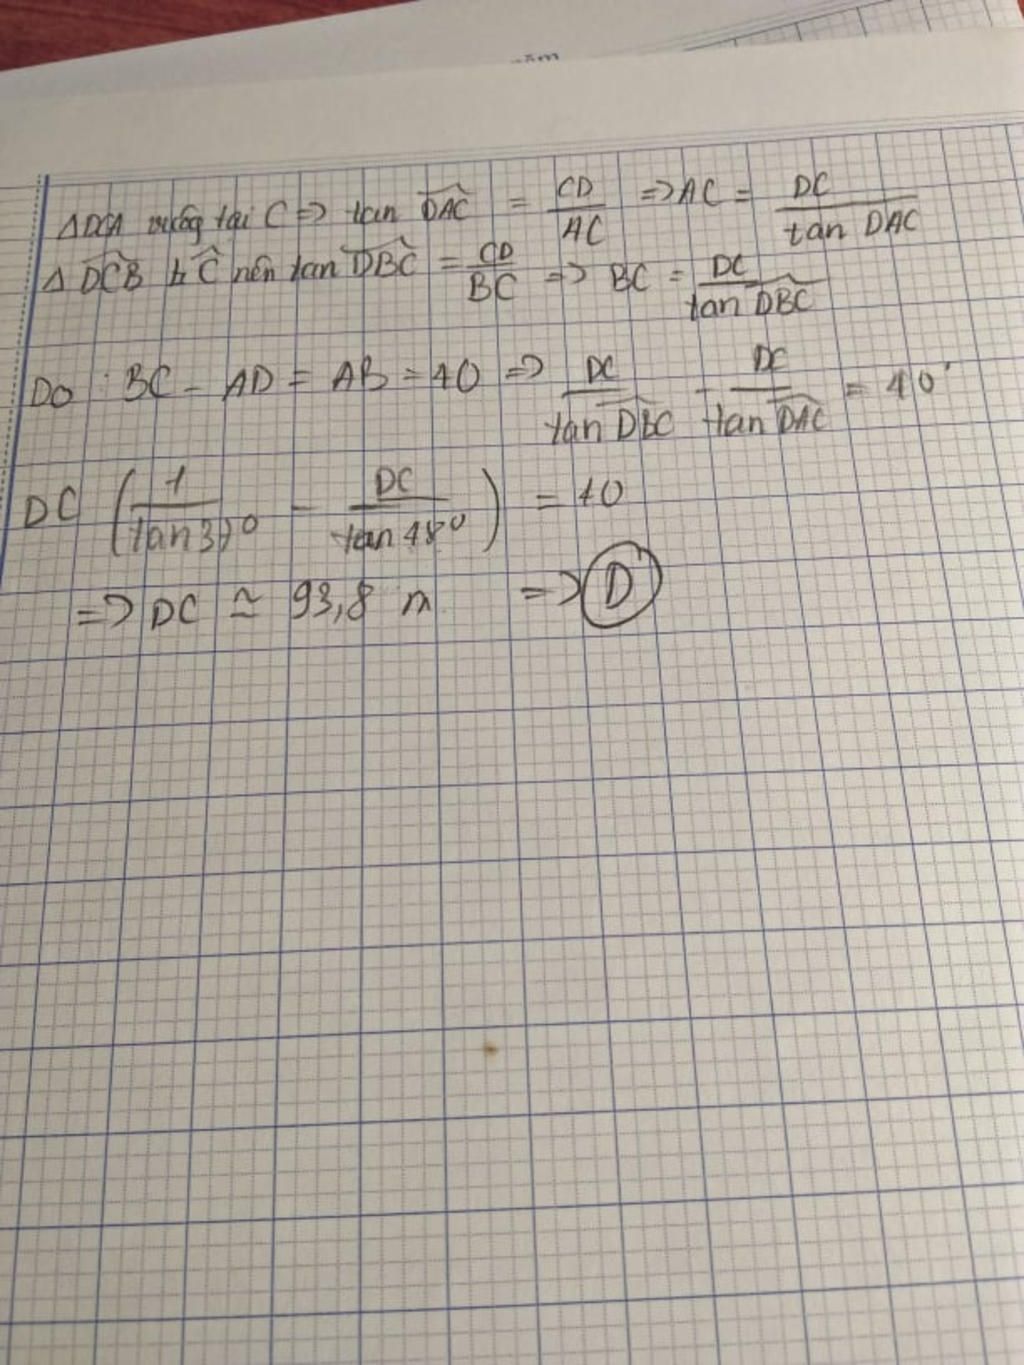 năm
ΔDCA vuông tại C => tan DAC = CD/AC => AC = DC/tan DAC
Δ DCB t C nên tan DBC = CD/BC => BC = DC/tan DBC
Do : BC - AD = AB = 40 => DC/tan DBC - DC/tan DAC = 40
DC (1/tan370 - DC/tan480) = 40
=> DC ≃ 93,8 m => D